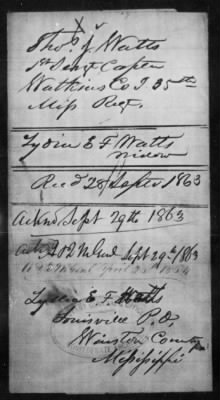 Thos J Watts
1st Sergt Captn
Watkins Co I 35th
Miss Reg.
Lydia E F Watts
Widow
Recd 25 Septr 1863
Acknd Sept 29th 1863
Sept 29th 1863
Lydia E. F. Watts
Louisville P.O.
Winston County
Mississippi